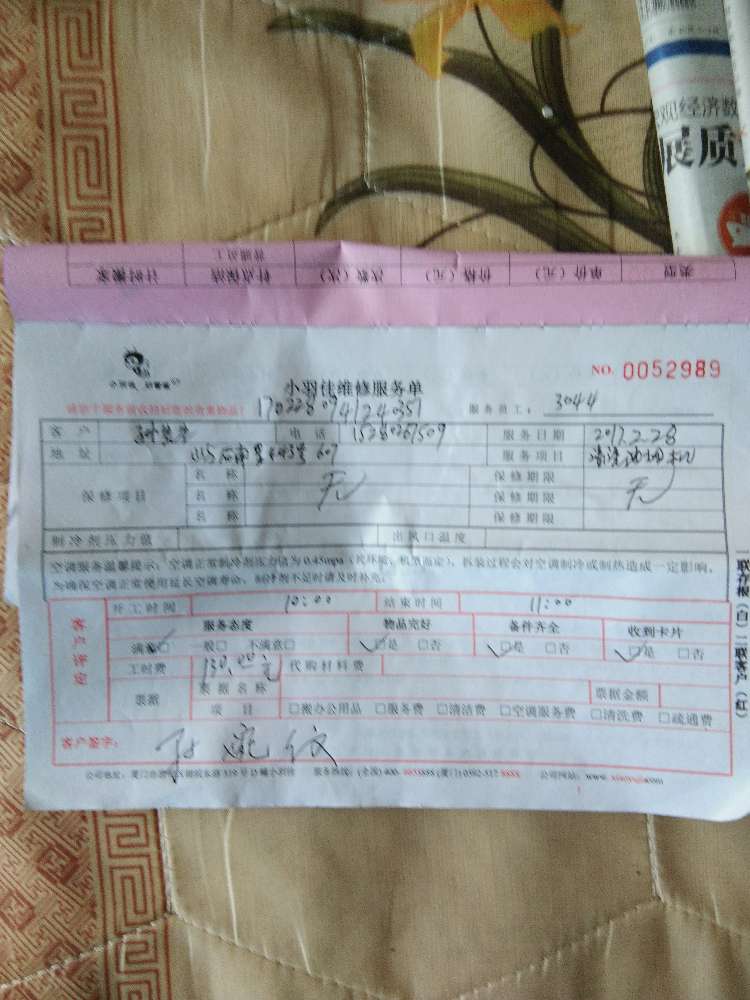 观经济数
展质
类型 单价（元） 价格（元） 次数（次） 钟点保洁 计时搬家
普通员工
NO. 0052989
小羽佳维修服务单
服务员工： 3044
客户 电话 15280267509 服务日期 2017.2.28
地址 607 服务项目 清洗油烟机
名称 无 保修期限 无
保修项目 名称 保修期限
名称 保修期限
制冷剂压力值 出风口温度
空调服务温馨提示：空调正常制冷剂压力值为0.45mpa（代环境、机型而定），拆装过程会对空调制冷或制热造成一定影响，
为确保空调正常使用延长空调寿命，制冷剂不足时请及时补充。
开工时间 10:00 结束时间 11:00
客户评定
服务态度 物品完好 备件齐全 收到卡片
满意□ 一般□ 不满意□ □是 □否 □是 □否 □是 □否
工时费 130.00元 代购材料费
票据 票据名称 票据金额
项目 □搬办公用品 □服务费 □清洁费 □空调服务费 □清洗费 □疏通费
客户签字：
公司地址：厦门市 服务热线：(全国)400- (厦门)0592-517 公司网站：www.
一联存根（白）二联客户（红）